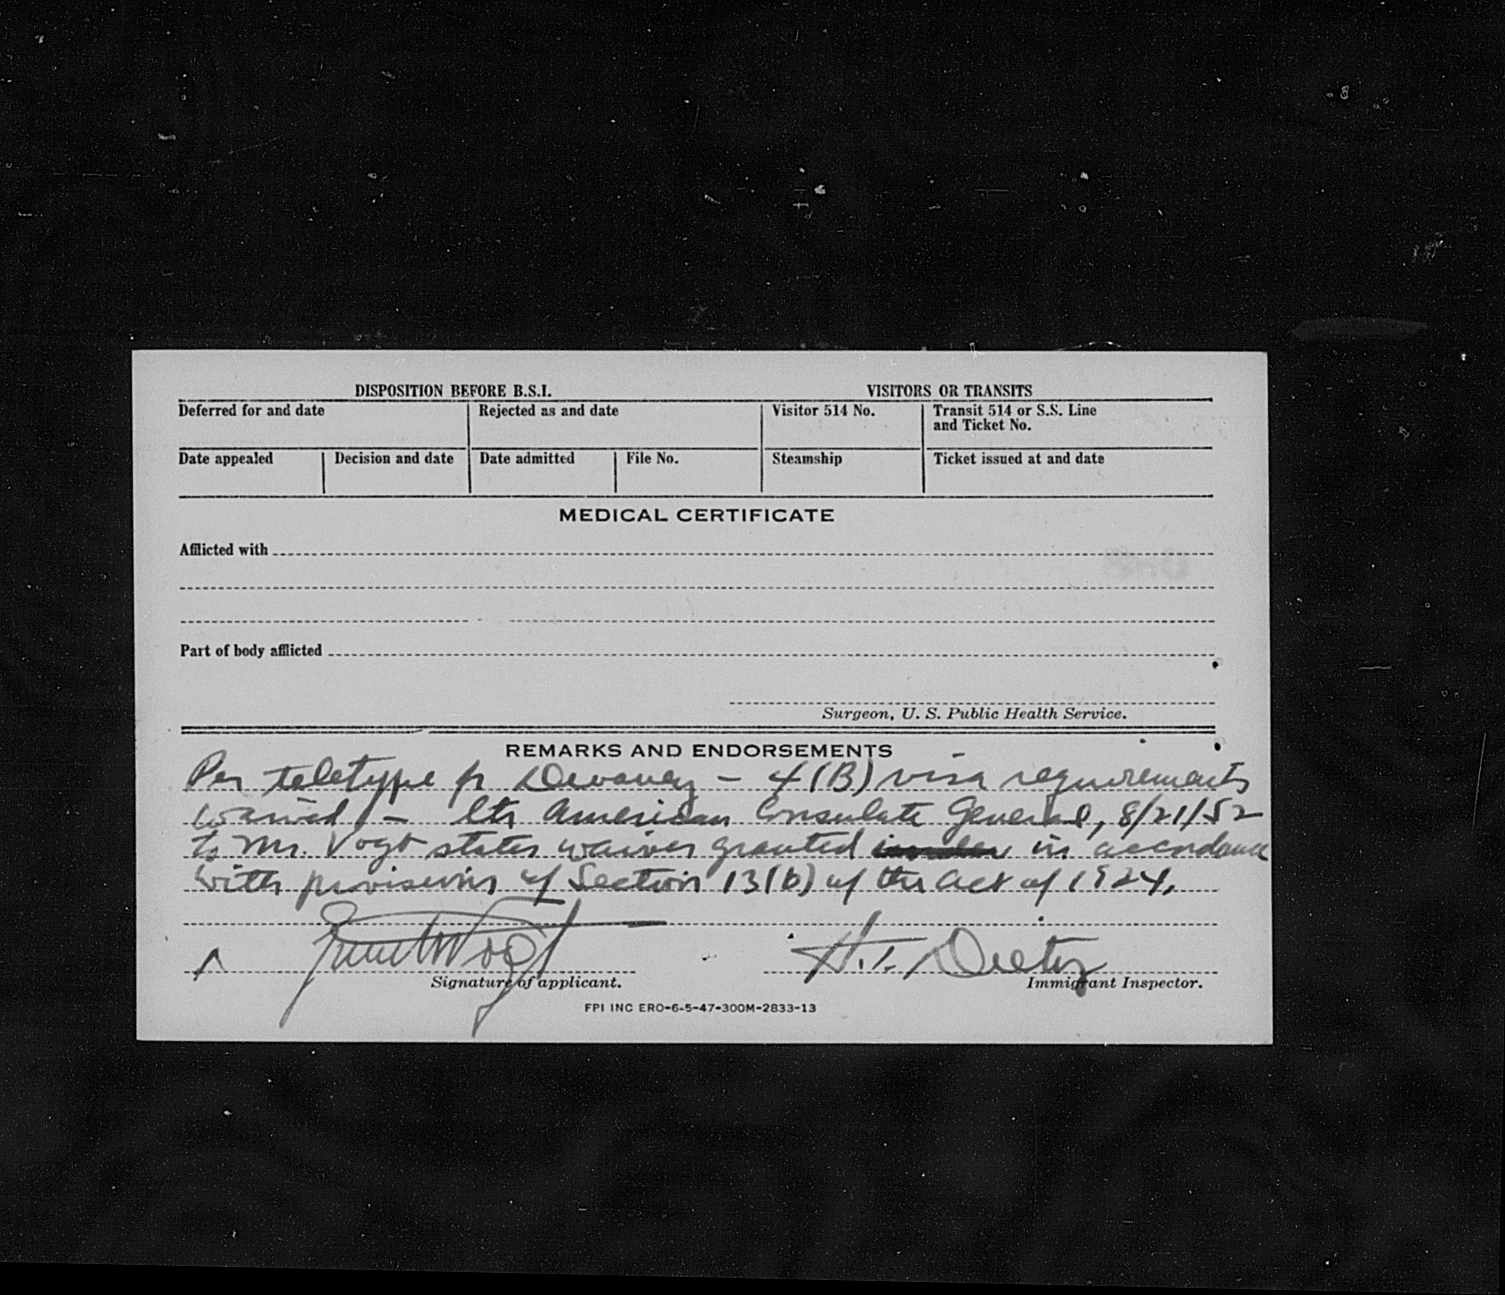 DISPOSITION BEFORE B.S.I. VISITORS OR TRANSITS
Deferred for and date Rejected as and date Visitor 514 No. Transit 514 or S.S. Line
and Ticket No.
Date appealed Decision and date Date admitted File No. Steamship Ticket issued at and date
MEDICAL CERTIFICATE
Afflicted with
Part of body afflicted
Surgeon, U. S. Public Health Service.
REMARKS AND ENDORSEMENTS
Per teletype fr Devaney - 4(B) visa requirements
waived - ltr American Consulate General, 8/21/52
to Mr. Vogt states waiver granted in accordance
with provisions of Section 13(b) of the act of 1924.
Vogt H. Dietz
Signature of applicant. Immigrant Inspector.
FPI INC ERO-6-5-47-300M-2833-13